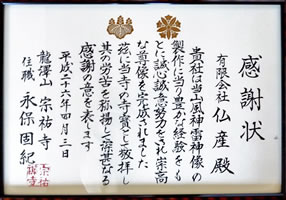 感謝状
有限会社 仏産殿
貴社は当山風神雷神像の
製作に当り豊かな経験をも
とに誠心誠意努力をされ崇高
な尊像を完成されました
茲に当寺の寺宝として敬拝し
其の労苦を称揚して深甚なる
感謝の意を表します
平成二十六年四月三日
龍澤山 宗祐寺
住職 永保固紀